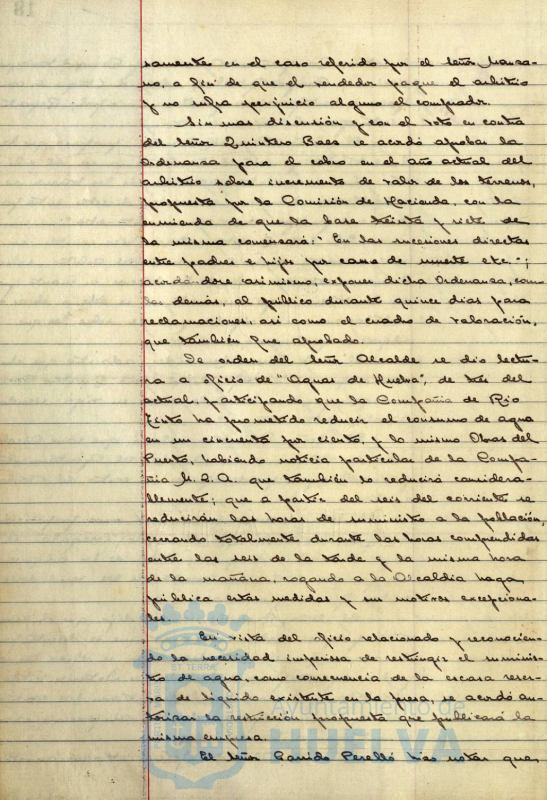 samente en el caso referido por el señor Manza-
no, a fin de que el vendedor pague el arbitrio
y no sufra perjuicio alguno el comprador.
Sin mas discusión y con el voto en contra
del señor Quintero Baez se acordó aprobar la
Ordenanza para el cobro en el año actual del
arbitrio sobre incremento de valor de los terrenos,
propuesta por la Comisión de Hacienda, con la
enmienda de que la base treinta y siete de
la misma comenzará: "En las sucesiones directas
entre padres e hijos por causa de muerte etc.";
acordándose asimismo, exponer dicha Ordenanza, como
las demás, al público durante quince dias para
reclamaciones, asi como el cuadro de valoración,
que también fue aprobado.
De orden del señor Alcalde se dio lectu-
ra a oficio de "Aguas de Huelva", de tres del
actual, participando que la Compañia de Rio
Tinto ha prometido reducir el consumo de agua
en un cincuenta por ciento, y lo mismo Obras del
Puerto, habiendo noticia particular de la Compa-
ñia M.Z.A. que también lo reducirá considera-
blemente; que a partir del seis del corriente se
reducirán las horas de suministro a la población,
cerrando totalmente durante las horas comprendidas
entre las seis de la tarde y la misma hora
de la mañana, rogando a la Alcaldia haga
pública estas medidas y sus motivos excepciona-
les.
En vista del oficio relacionado y reconocien-
do la necesidad imperiosa de restringir el suminis-
tro de agua, como consecuencia de la escasa reser-
va de liquido existente en la presa, se acordó au-
torizar la restricción propuesta que publicará la
misma empresa.
El señor Garrido Perelló hizo notar que,
Ayuntamiento de
HUELVA